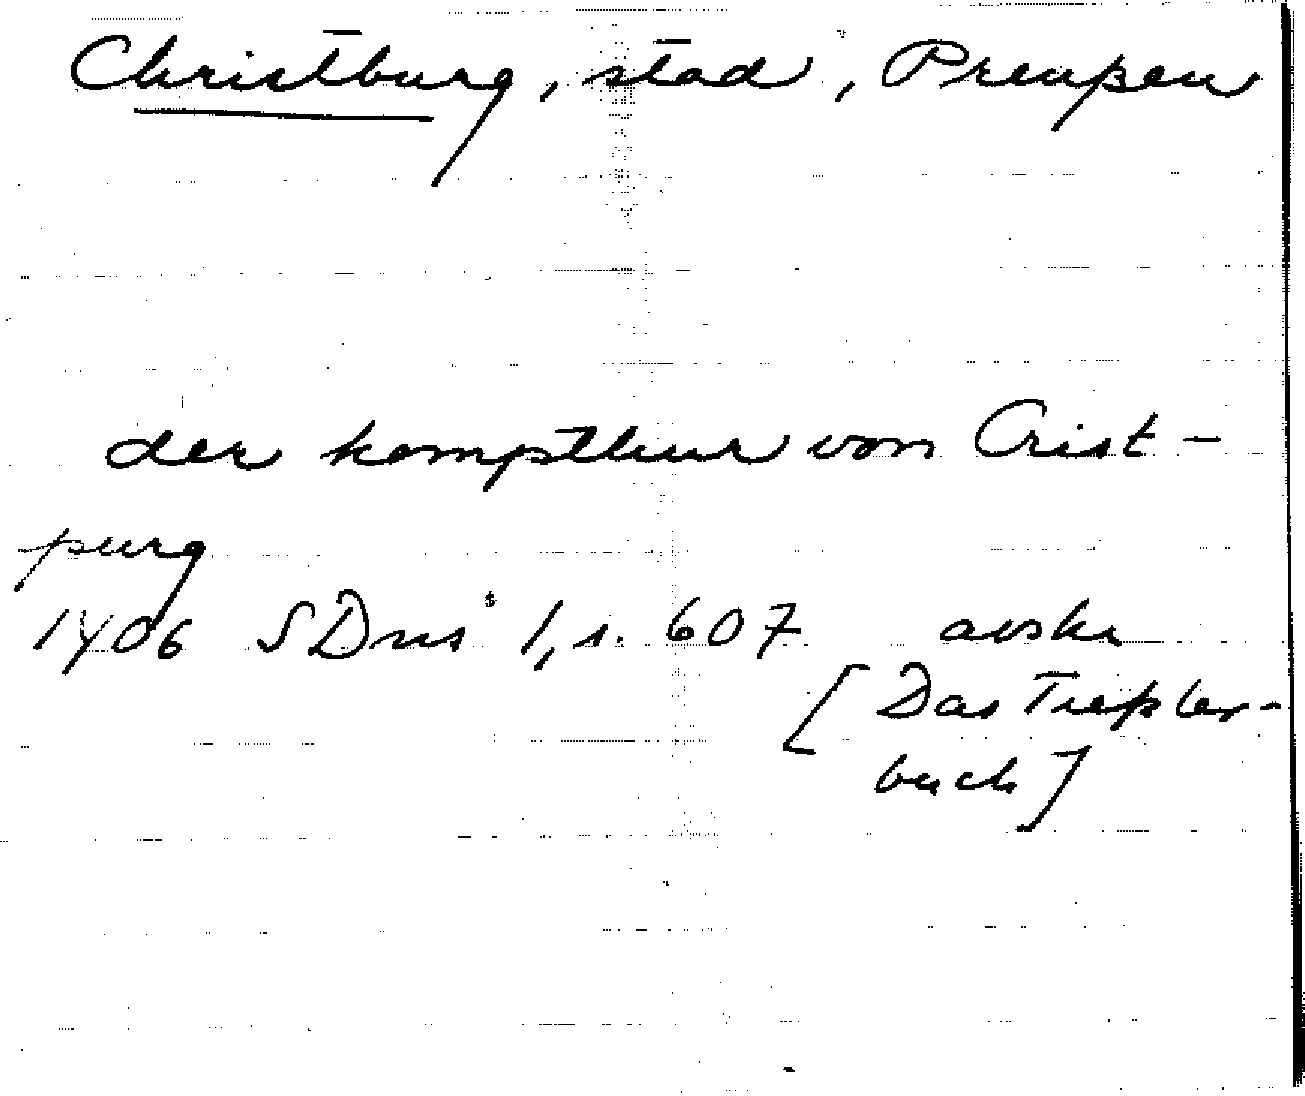 Christburg, stad, Preußen
der kompthur von Crist-
purg
1406 SDns 1, s. 607 avskr
[Das Tressler-
buch]